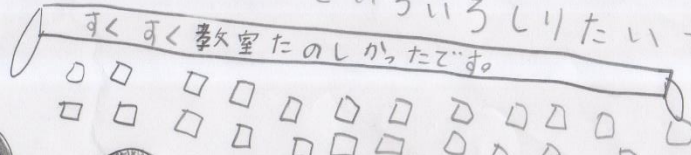 いろいろしりたい
すくすく教室たのしかったです。